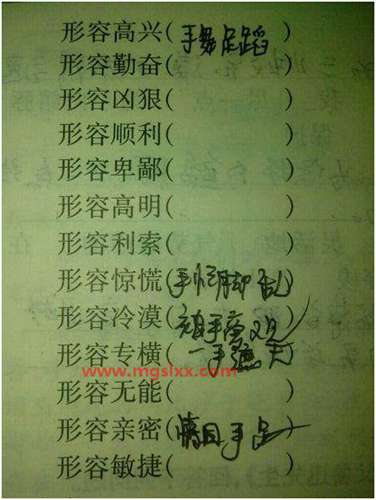 形容高兴(手舞足蹈)
形容勤奋( )
形容凶狠( )
形容顺利( )
形容卑鄙( )
形容高明( )
形容利索( )
形容惊慌(手忙脚乱)
形容冷漠( )
形容专横(一手遮天)
www.mgslxx.com
形容无能( )
形容亲密(情同手足)
形容敏捷( )